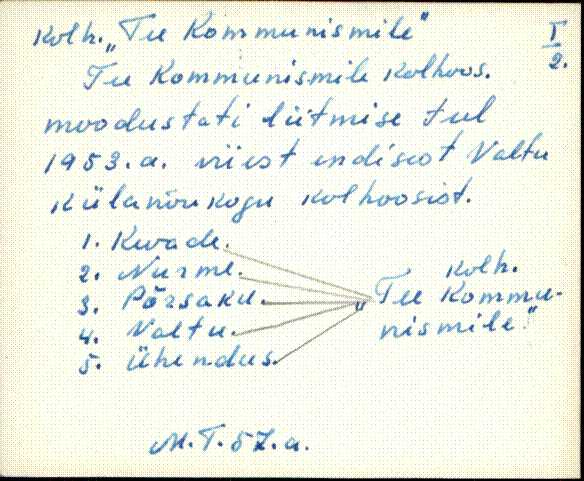 Kolh. „Tee Kommunismile"
I
2.
Tee Kommunismile kolhoos.
moodustati liitmise tul
1953.a. viiest endisest Valtu
külanõukogu kolhoosist.
1. Kevade.
2. Nurme.
3. Põrsaku.
4. Valtu.
5. Ühendus.
kolh.
„Tee Kommu-
nismile"
M.T. 57.a.